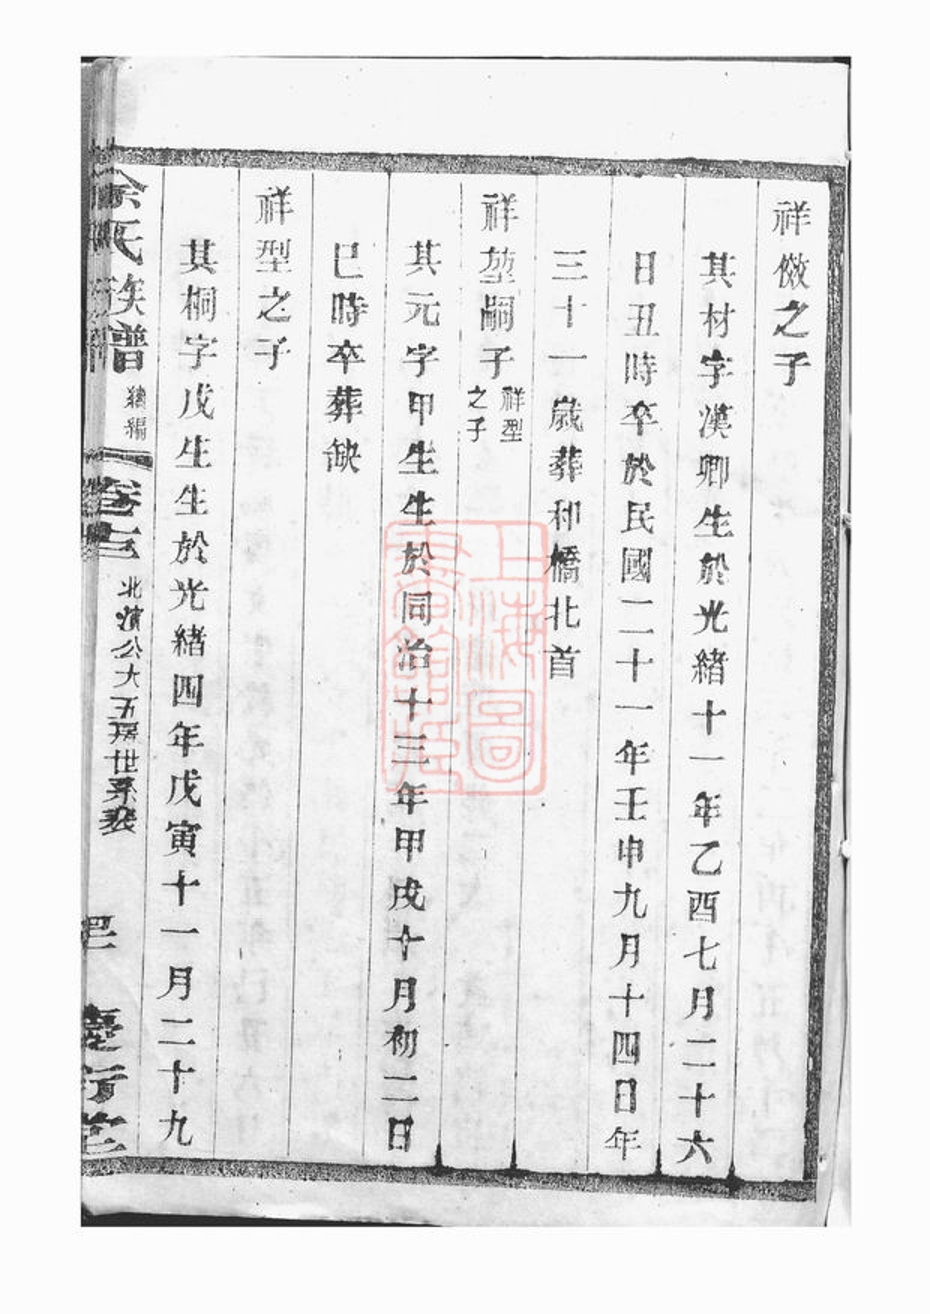 祥儆之子
其材字漢卿生於光緒十一年乙酉七月二十六
日丑時卒於民國二十一年壬申九月十四日年
三十一歲葬和橋北首
祥堃嗣子祥型之子
其元字甲生生於同治十三年甲戌十月初二日
巳時卒葬缺
祥型之子
其桐字戊生生於光緒四年戊寅十一月二十九
徐氏族譜 續編 卷十二 北演公大五房世系表 慶衍堂
上海圖書館藏